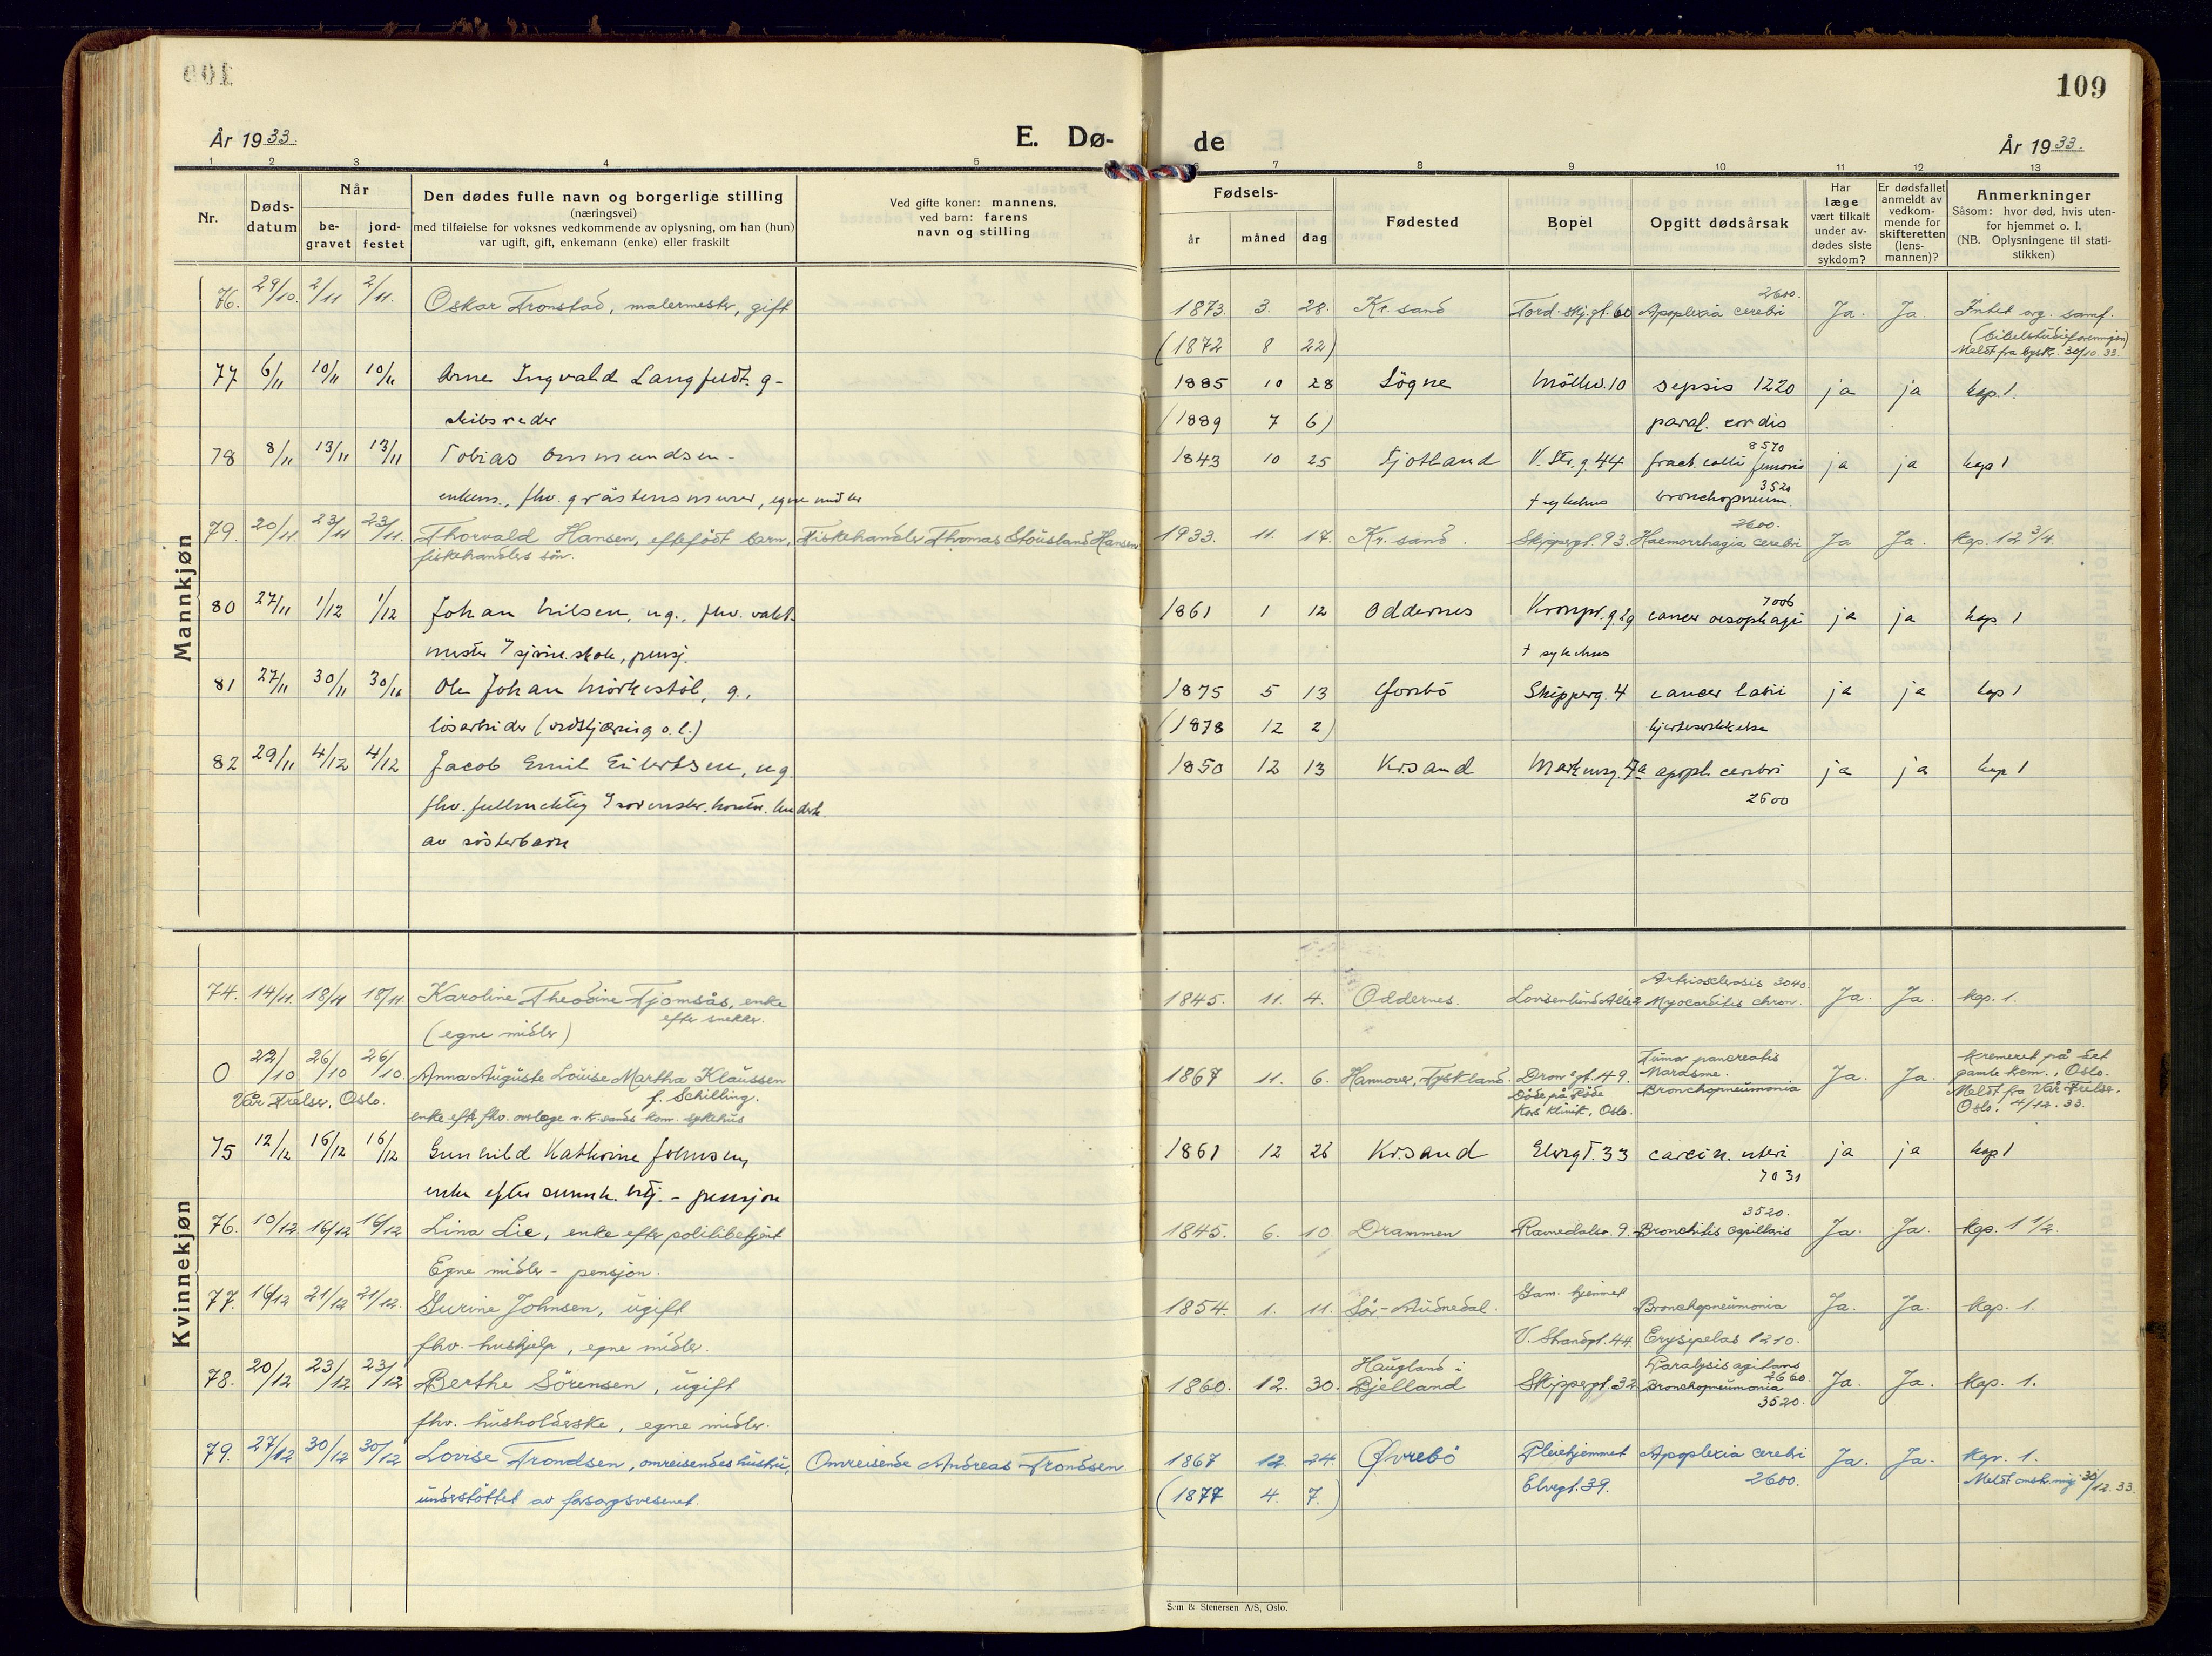 109
År 1933.
E. Dø-
de
År 1933.
1 2 3 4 5 7 8 9 10 11 12 13
Nr.
Døds-
datum
Når
be-
gravet
jord-
festet
Den dødes fulle navn og borgerlige stilling
(næringsvei)
med tilføielse for voksnes vedkommende av oplysning, om han (hun)
var ugift, gift, enkemann (enke) eller fraskilt
Ved gifte koner: mannens,
ved barn: farens
navn og stilling
Fødsels-
år
måned
dag
Fødested
Bopel
Opgitt dødsårsak
Har
læge
vært tilkalt
under av-
dødes siste
sykdom?
Er dødsfallet
anmeldt av
vedkom-
mende for
skifteretten
(lens-
mannen)?
Anmerkninger
Såsom: hvor død, hvis uten-
for hjemmet o. l.
(NB. Oplysningene til stati-
stikken)
Mannkjøn
76. 29/10. 2/11 2/11. Oskar Tronstad, malermester, gift 1873. 3. 28. Kr. sand Tord. skj. gt. 60 Apoplexia cerebri 2600. Ja. Ja. Intet org. samf.
(1872 8 22) (bibelstudieforeningen)
Meldt fra byskr. 30/10. 33.
77 6/11 10/11 10/11 Arne Ingvald Langfeldt g- 1885 10 28 Søgne Møllev. 10 sepsis 1220 ja ja kap. 1.
skibsreder (1889 7 6) paral. cordis
78 8/11 13/11 13/11 Tobias Ommundsen- 1843 10 25 Fjotland V. Str. g. 44 fract. colli femoris 8570 ja ja kap 1
enkem., fhv. gråstensmurer, egne midler † sykehus bronchopneum. 3520
79. 20/11. 23/11 23/11. Thorvald Hansen, eftefødt barn, Fiskehandler Thomas Stousland Hansen 1933. 11. 17. Kr. sand. Skippergt. 93. Haemorrhagia cerebri 2600. Ja Ja. Kap. 12 3/4
fiskehandlers søn.
80 27/11 1/12 1/12 Johan Nilsen, ug., fhv. vakt- 1861 1 12 Oddernes Kronpr. g. 29 cancer oesophagi 7006 ja ja kap. 1
mester v/ sjøm. skole, pensj. † sykehus
81 27/11 30/11 30/11 Ole Johan Mørkestøl, g., 1875 5 13 Skipperg. 4 cancer labii ja ja kap 1
løsarbeider (vedskjæring o. l.) (1878 12 2)
82 29/11 4/12 4/12 Jacob Emil Eilertsen, ug 1850 12 13 Kr.sand Markensg. 7a apopl. cerebri ja ja kap 1
fhv. fullmektig v/ sorenskr. kontor. underh. 2600
av søsterbarn
Kvinnekjøn
74. 14/11. 18/11 18/11. Karoline Theodine Fjomsås, enke 1845. 11. 4. Oddernes. Lovisenlund Allé 2 Arteriosclerosis 3040. Myocarditis chron. Ja. Ja. Kap. 1.
efter snekker.
(egne midler)
0 22/10 26/10 26/10. Anna Auguste Louise Martha Klaussen 1867 11. 6. Hannover, Tyskland. Dron. gt. 49. Tumor pancreatis Ja. Ja. Kremeret på det
Vår Frelser, Oslo. f. Schilling. Døde på Røde Marasme. gamle krem., Oslo.
enke efter fhv. overlæge v. Kr.sands kom. sykehus Kors klinik, Oslo. Bronchopneumonia Meldt fra Vår Frelser.
Oslo. 4/12. 33.
75 12/12 16/12 16/12 Gunhild Kathrine Johnsen, 1861 12 26 Kr.sand Elvegt. 33 carcin. uteri ja ja kap 1
enke efter - pensjon 7031
76. 10/12. 16/12 16/12 Lina Lie, enke efter politibetjent 1845. 6. 10. Drammen Ravnedalsv. 9. Bronchitis capillaris 3520. Ja. Ja. Kap. 1 1/2.
Egne midler - pensjon.
77. 16/12 21/12 21/12. Surine Johnsen, ugift 1854. 1. 11. Sør-Audnedal. Gam. hjemmet Bronchopneumonia Ja. Ja. Kap. 1.
fhv. hushjelp, egne midler. V. Strandgt. 44. Erysipelas 1210.
78. 20/12 23/12 23/12 Berthe Sørensen, ugift 1860. 12. 30. Haugland i Bjelland Skippergt. 32. Paralysis agitans 2660. Bronchopneumonia 3520. Ja. Ja. Kap. 1.
fhv. husholderske, egne midler.
79. 27/12 30/12 30/12 Lovise Trondsen, omreisendes hustru, Omreisende Andreas Trondsen 1867 12. 24. Øvrebø Pleiehjemmet Apoplexia cerebri Ja. Ja. Kap. 1.
understøttet av forsorgsvesenet. (1877 4. 7.) Elvegt. 39. 2600. 30/12. 33.
Sem & Stenersen A/S, Oslo.